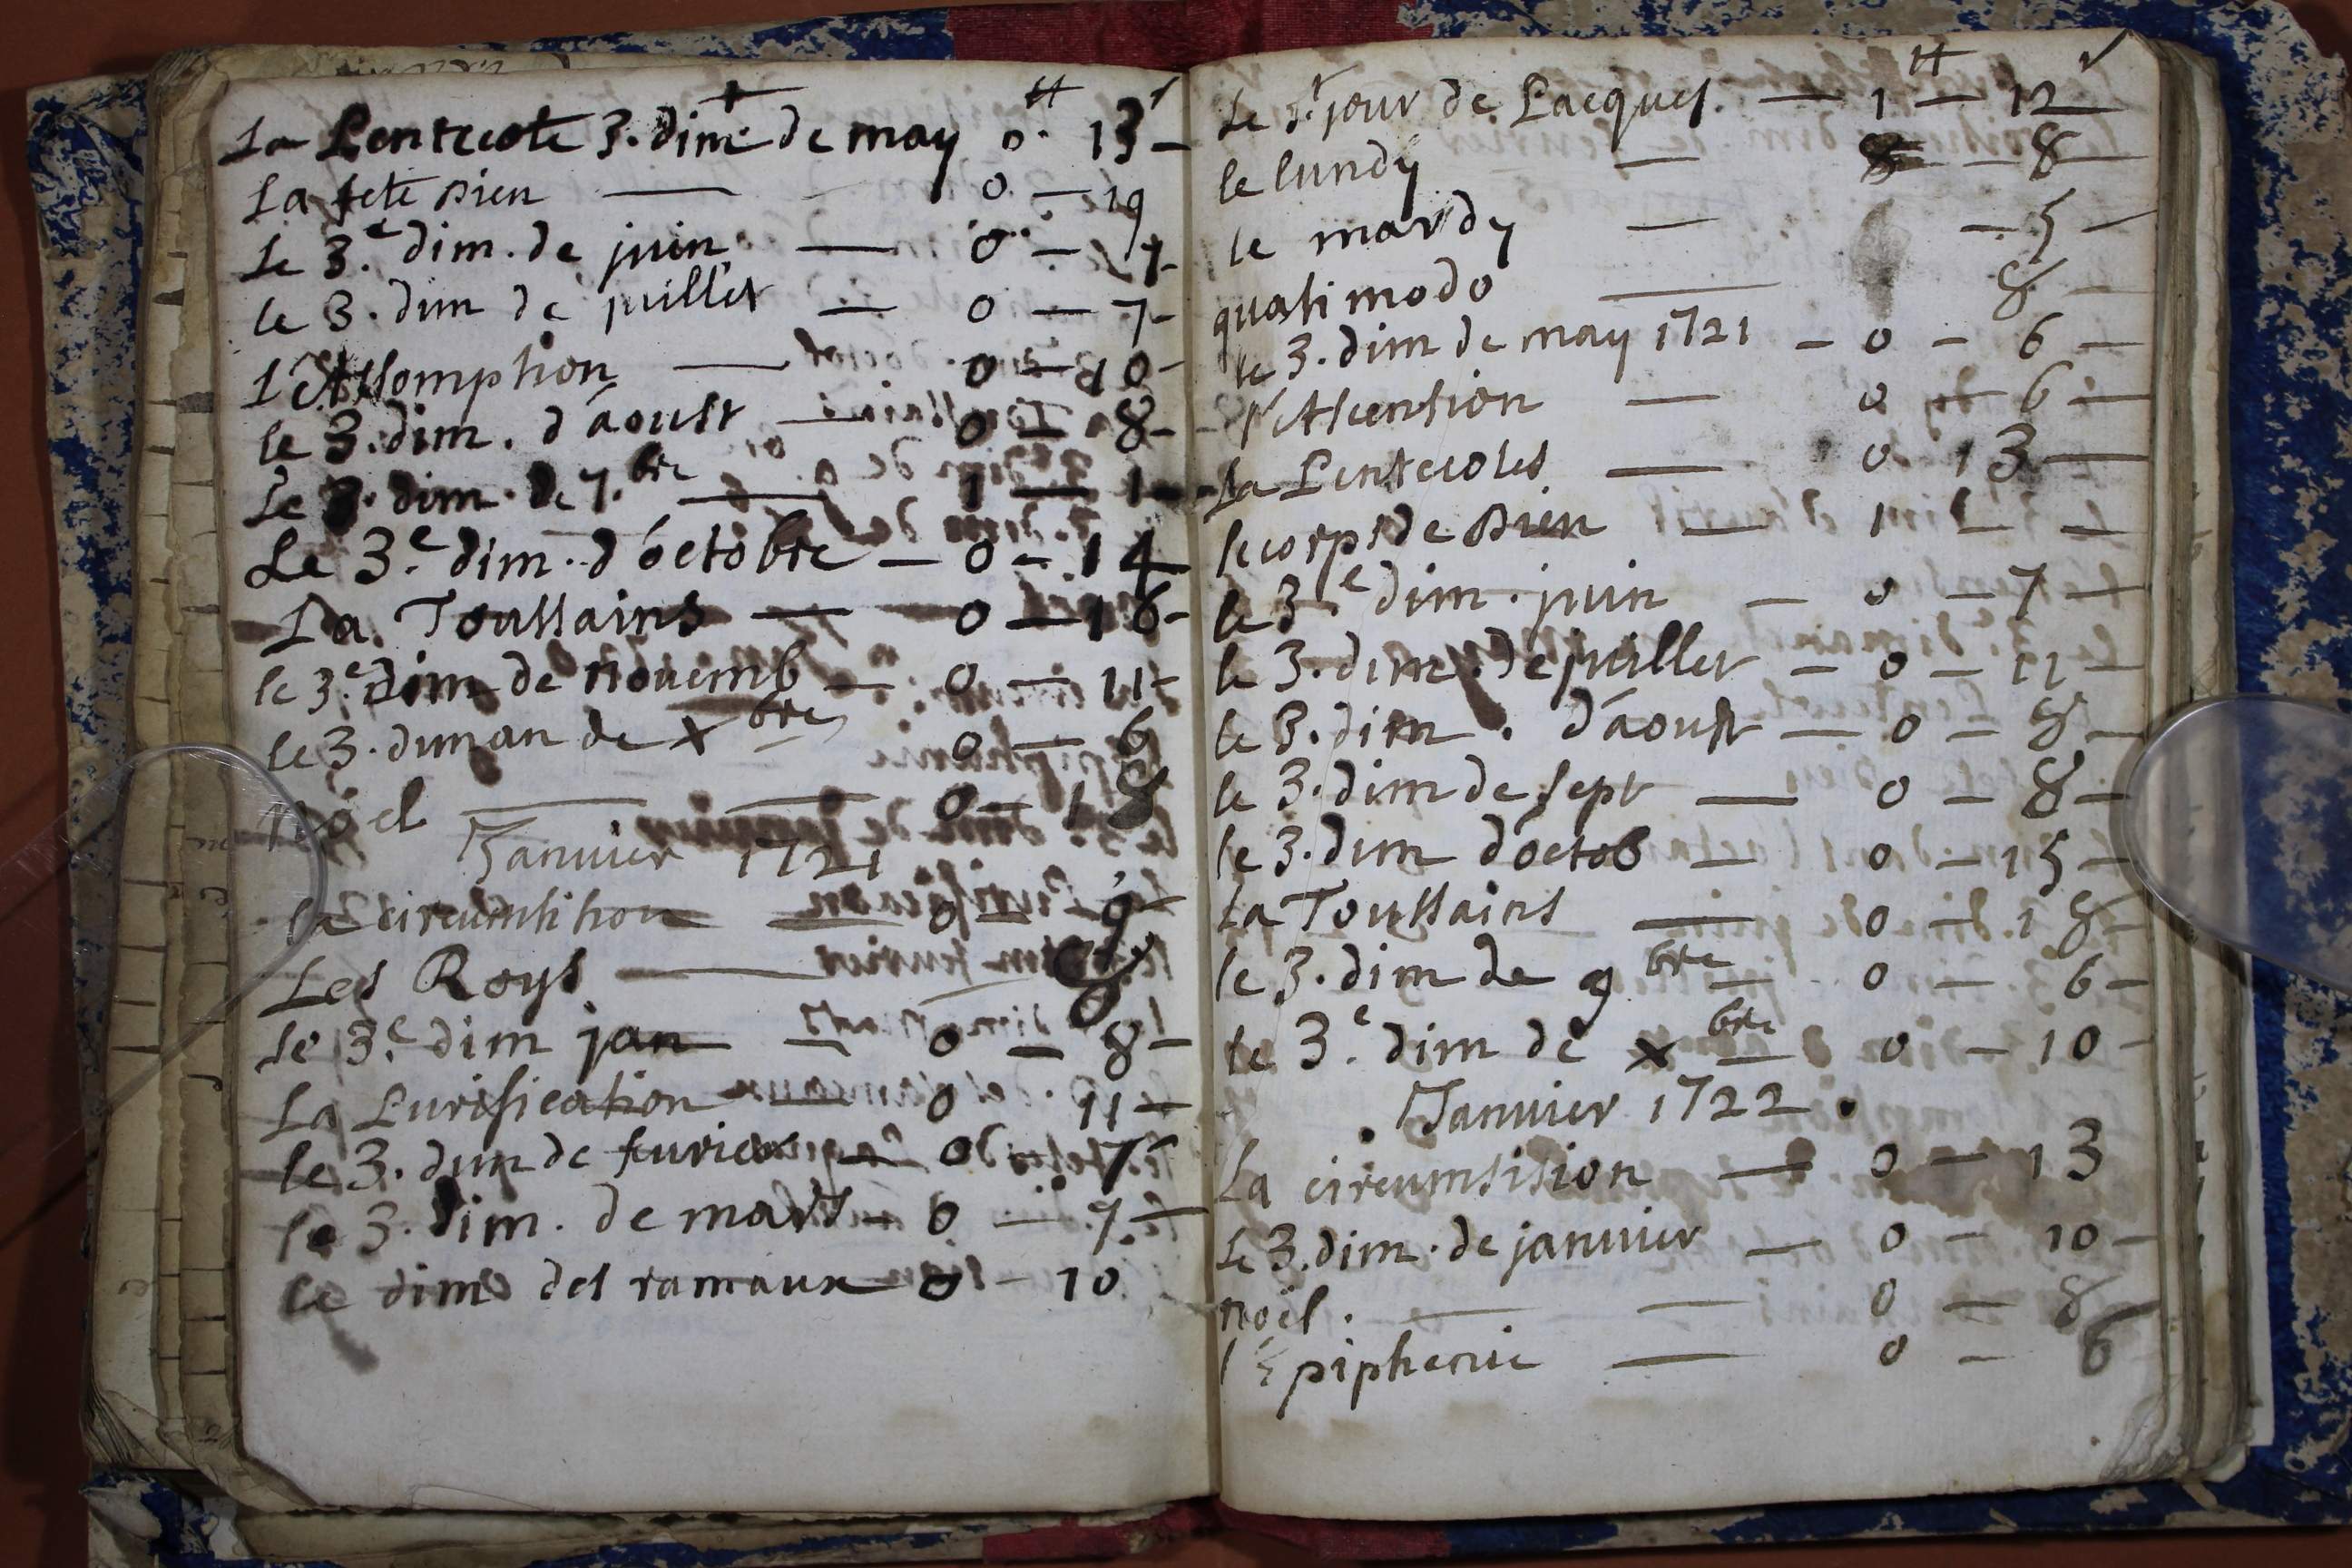 La Pentecote 3. dim de may 0 13 -
La fete Dieu — 0 - 19
Le 3.e dim. de juin — 0 - 7 -
le 3. dim de juillet — 0 - 7 -
L'Assomption — 0 - 10 -
le 3. dim. d'aoust — 0 - 8 -
Le 3. dim. de 7.bre — 1 — 1
Le 3.e dim. d'octobre — 0 - 14
La Toussains — 0 - 18 -
le 3.e dim de novemb — 0 — 11 -
le 3. diman de Xbre 0 — 6
noël — — 0 - 18
Janvier 1721
la circumsition — 0 - 9 -
Les Roys —
Le 3.e dim jan — 0 - 8 -
La Purification — 0 11 -
le 3. dim de fuvrier — 0 - 7
le 3. dim. de mars - 0 — 7 -
le dim des ramaux 0 - 10
Le 1.r jour de Pacques. — 1 — 12
le lundy — - 8
le mardy — - 5 -
quasimodo — 8 -
le 3. dim de may 1721 - 0 - 6 -
l'Ascention — 0 - 6 -
La Pentecotes — 0 13 —
le corps de Dieu — 1 -
le 3.e dim. juin - 0 - 7 -
le 3. dim. de juillet - 0 - 11 -
le 3. dim. d'aoust — 0 - 8 -
le 3. dim de sept — 0 - 8 -
le 3. dim d'octob — 0 - 15 -
La Toussaints — 0 - 18 -
le 3. dim de 9bre - 0 - 6 -
le 3.e dim de Xbre 0 - 10 -
Janvier 1722.
La circumsision — 0 - 13
Le 3. dim. de janvier — 0 - 10 -
noël. — — 0 - 8
l'Epiphanie — 0 - 6